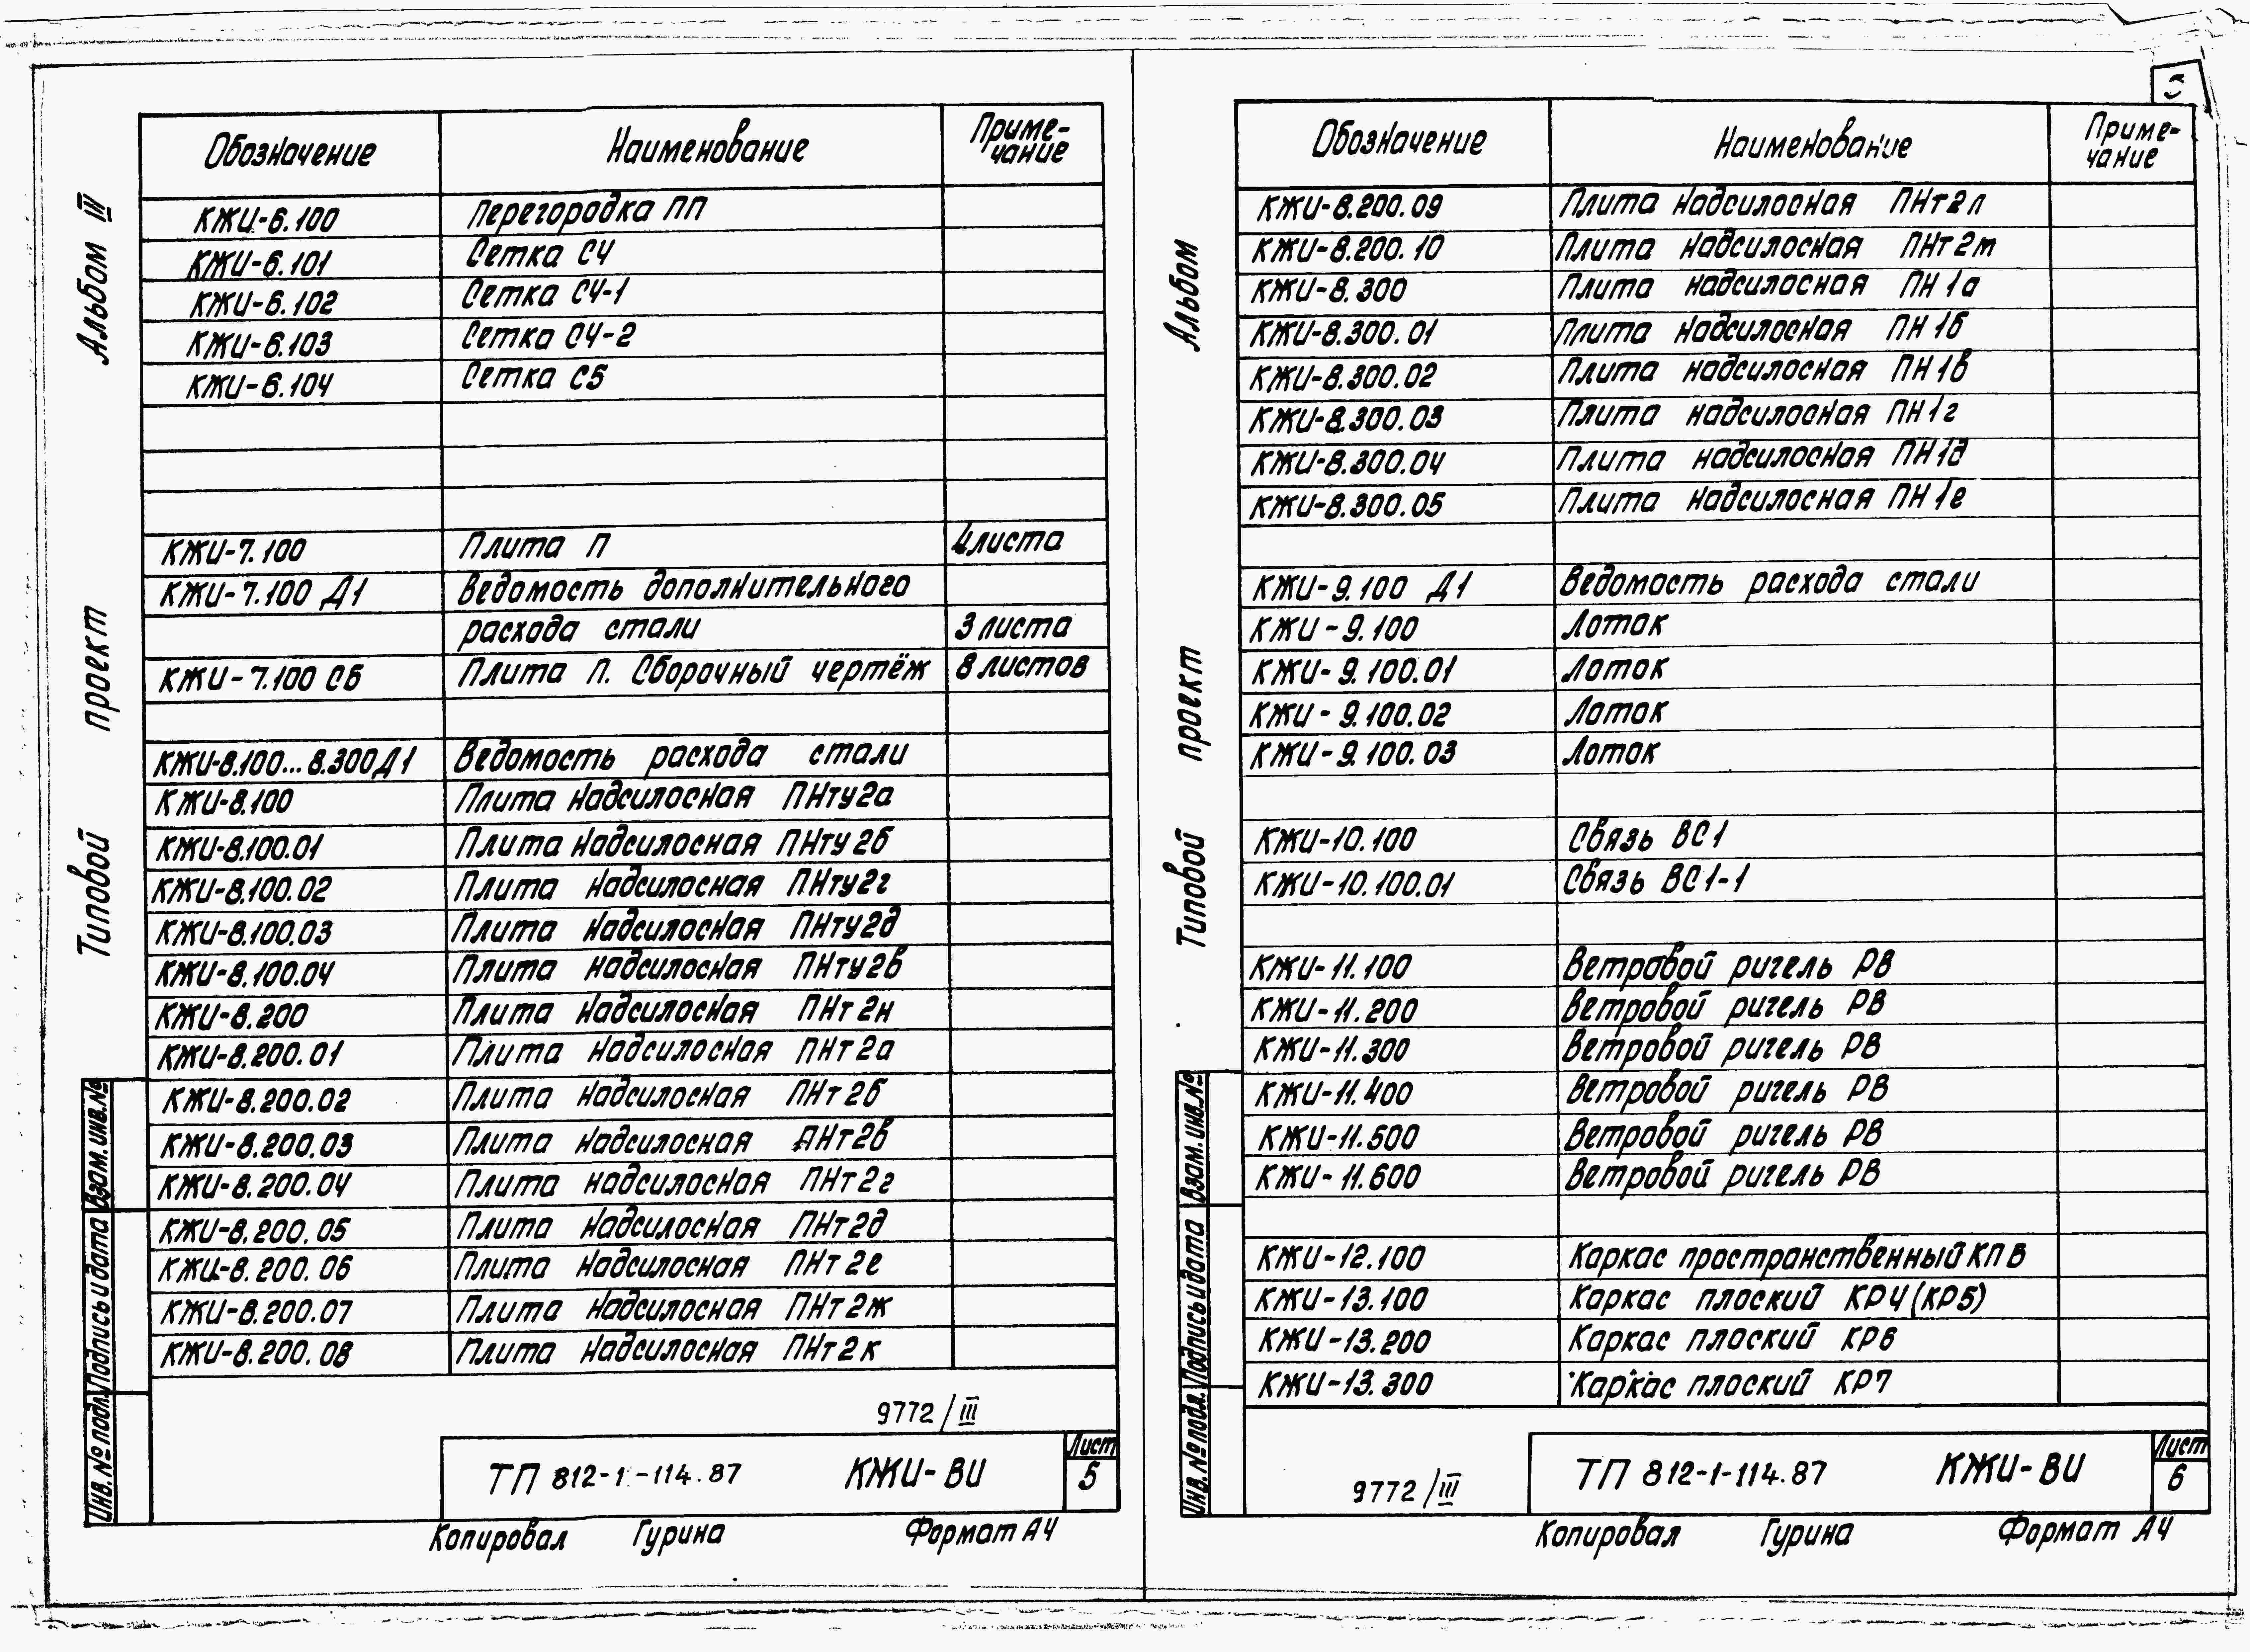 Альбом III
проект
Типовой
Взам. инв. №
Подпись и дата
Инв. № подл.
Обозначение Наименование Приме-
чание
КЖИ-6.100 Перегородка ПП
КЖИ-6.101 Сетка С4
КЖИ-6.102 Сетка С4-1
КЖИ-6.103 Сетка С4-2
КЖИ-6.104 Сетка С5
КЖИ-7.100 Плита П 4 листа
КЖИ-7.100 Д1 Ведомость дополнительного
расхода стали 3 листа
КЖИ-7.100 СБ Плита П. Сборочный чертёж 8 листов
КЖИ-8.100...8.300Д1 Ведомость расхода стали
КЖИ-8.100 Плита надсилосная ПНту2а
КЖИ-8.100.01 Плита надсилосная ПНту2б
КЖИ-8.100.02 Плита надсилосная ПНту2г
КЖИ-8.100.03 Плита надсилосная ПНту2д
КЖИ-8.100.04 Плита надсилосная ПНту2в
КЖИ-8.200 Плита надсилосная ПНт2н
КЖИ-8.200.01 Плита надсилосная ПНт2а
КЖИ-8.200.02 Плита надсилосная ПНт2б
КЖИ-8.200.03 Плита надсилосная ПНт2в
КЖИ-8.200.04 Плита надсилосная ПНт2г
КЖИ-8.200.05 Плита надсилосная ПНт2д
КЖИ-8.200.06 Плита надсилосная ПНт2е
КЖИ-8.200.07 Плита надсилосная ПНт2ж
КЖИ-8.200.08 Плита надсилосная ПНт2к
9772/III
ТП 812-1-114.87 КЖИ-ВИ Лист
5
Копировал Гурина Формат А4
Альбом
проект
Типовой
Взам. инв. №
Подпись и дата
Инв. № подл.
Обозначение Наименование Приме-
чание
КЖИ-8.200.09 Плита надсилосная ПНт2л
КЖИ-8.200.10 Плита надсилосная ПНт2м
КЖИ-8.300 Плита надсилосная ПН1а
КЖИ-8.300.01 Плита надсилосная ПН1б
КЖИ-8.300.02 Плита надсилосная ПН1в
КЖИ-8.300.03 Плита надсилосная ПН1г
КЖИ-8.300.04 Плита надсилосная ПН1д
КЖИ-8.300.05 Плита надсилосная ПН1е
КЖИ-9.100 Д1 Ведомость расхода стали
КЖИ-9.100 Лоток
КЖИ-9.100.01 Лоток
КЖИ-9.100.02 Лоток
КЖИ-9.100.03 Лоток
КЖИ-10.100 Связь ВС1
КЖИ-10.100.01 Связь ВС1-1
КЖИ-11.100 Ветровой ригель РВ
КЖИ-11.200 Ветровой ригель РВ
КЖИ-11.300 Ветровой ригель РВ
КЖИ-11.400 Ветровой ригель РВ
КЖИ-11.500 Ветровой ригель РВ
КЖИ-11.600 Ветровой ригель РВ
КЖИ-12.100 Каркас пространственный КПВ
КЖИ-13.100 Каркас плоский КР4(КР5)
КЖИ-13.200 Каркас плоский КР6
КЖИ-13.300 Каркас плоский КР7
9772/III
ТП 812-1-114.87 КЖИ-ВИ Лист
6
Копировал Гурина Формат А4